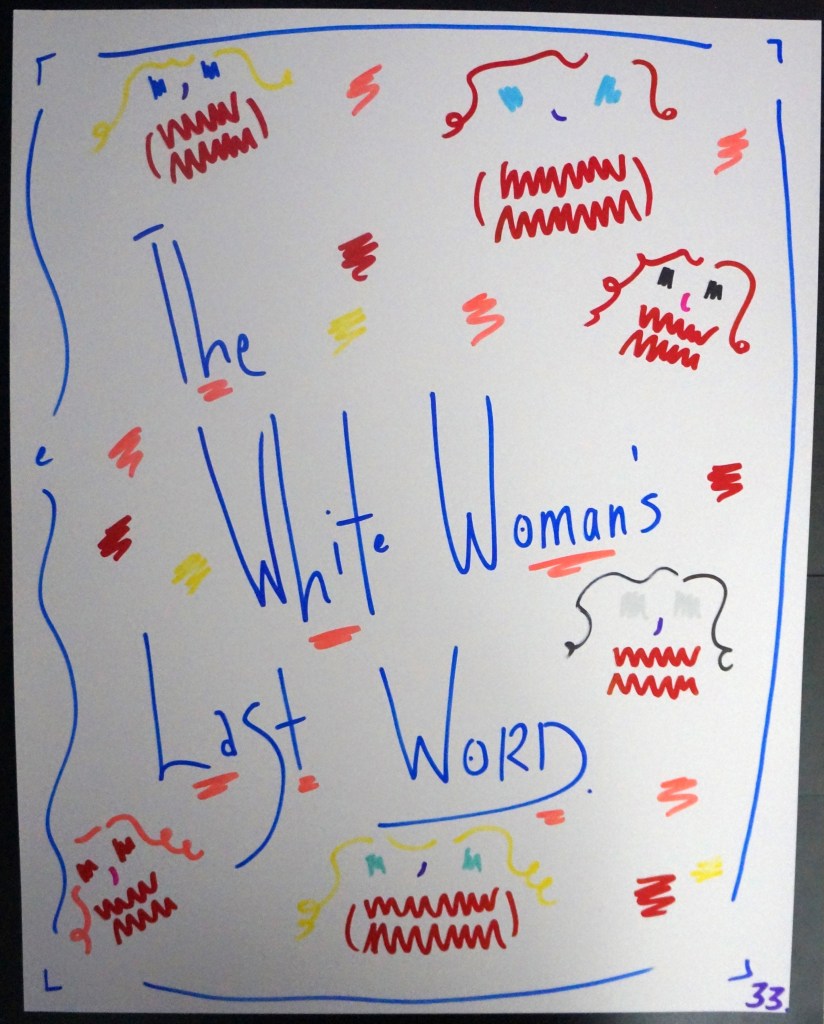 The
White Woman's
Last WORD.
33.